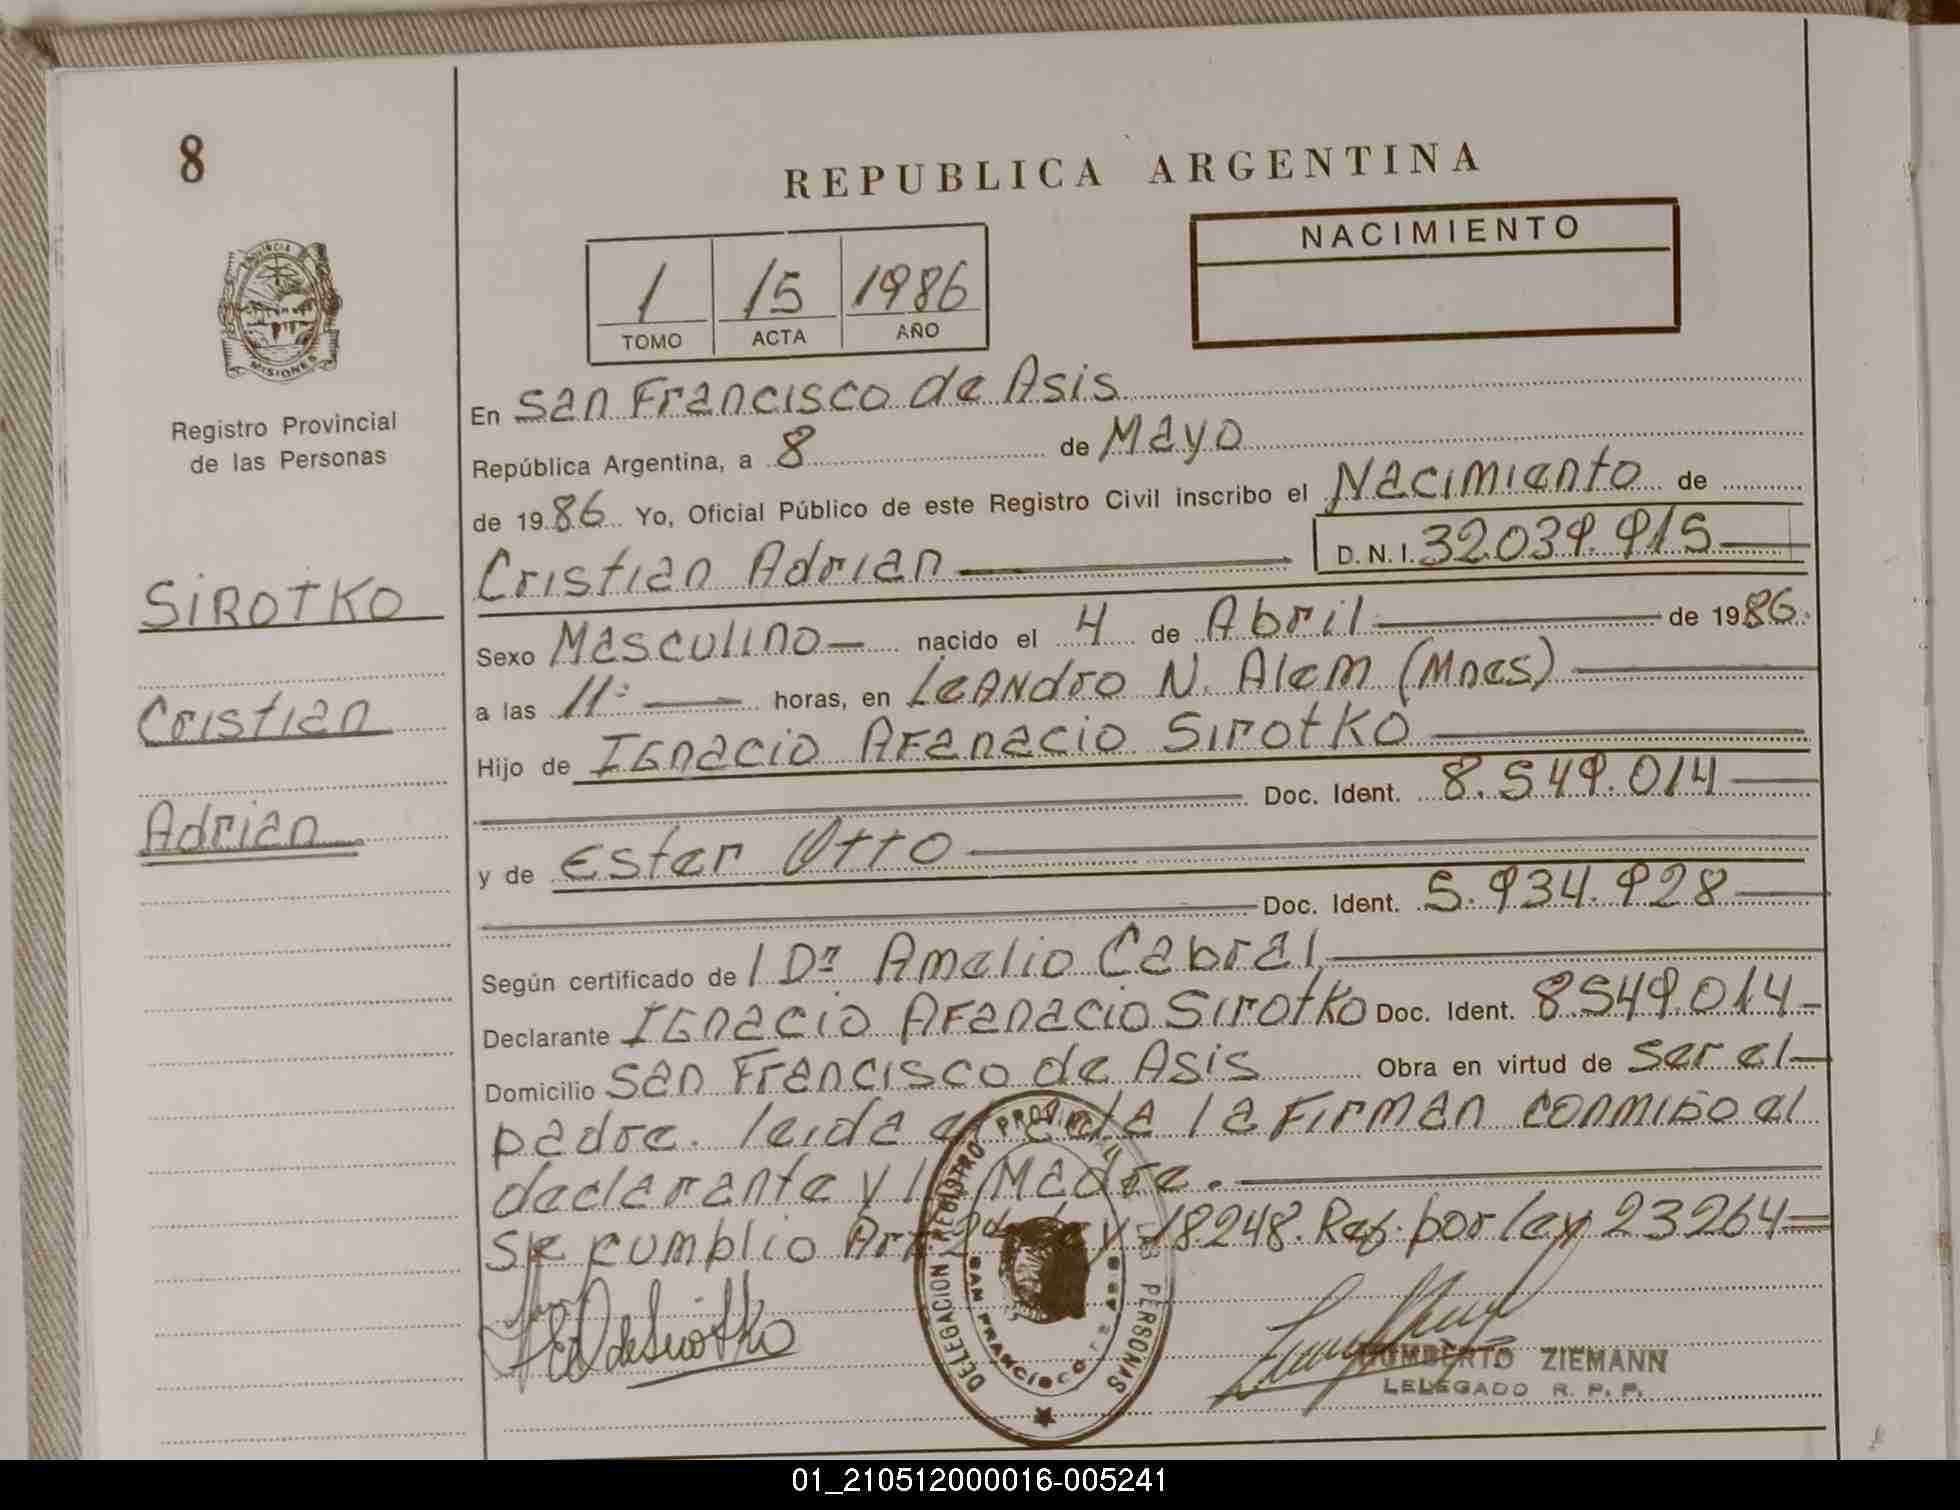 8
REPUBLICA ARGENTINA
PROVINCIA
MISIONES
Registro Provincial
de las Personas
1 15 1986
TOMO ACTA AÑO
NACIMIENTO
En San Francisco de Asis
República Argentina, a 8 de Mayo
de 1986 Yo, Oficial Público de este Registro Civil inscribo el Nacimiento de
Cristian Adrian D.N.I. 32.039.915
SIROTKO
Cristian
Adrian
Sexo Masculino nacido el 4 de Abril de 1986.
a las 11: horas, en Leandro N. Alem (Mnes)
Hijo de Ignacio Afanacio Sirotko
Doc. Ident. 8.549.014
y de Ester Otto
Doc. Ident. 5.934.928
Según certificado del Dr Amelio Cabral
Declarante Ignacio Afanacio Sirotko Doc. Ident. 8.549.014
Domicilio San Francisco de Asis Obra en virtud de ser el
padre. leida el acta la firman conmigo el
declarante y la Madre.
se cumplio Art. 2 de ley 18248. Ref. por ley 23264
E O de Sirotko
DELEGACION REGISTRO PROVINCIAL DE LAS PERSONAS
SAN FRANCISCO DE ASIS
HUMBERTO ZIEMANN
DELEGADO R. P. P.
01_210512000016-005241